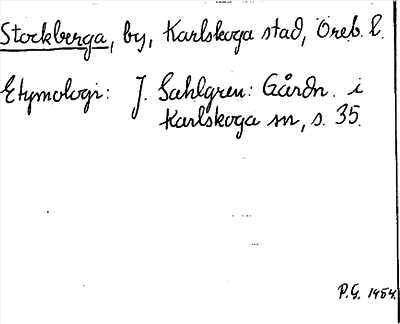 Stockberga, by, Karlskoga stad, Öreb. l.
Etymologi: J. Sahlgren: Gårdn. i
Karlskoga sn, s. 35.
P.G. 1954.